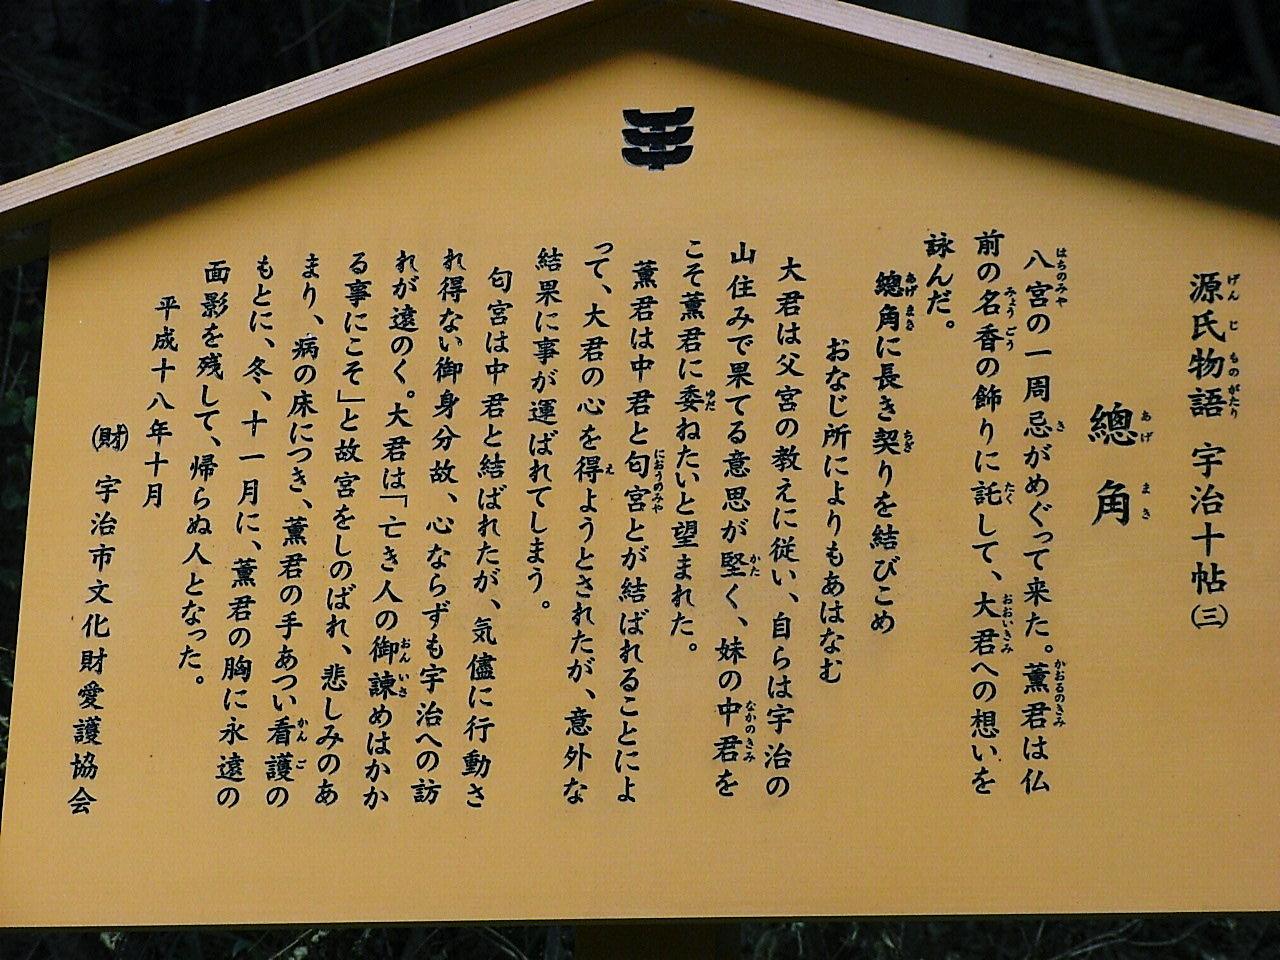 源氏物語 宇治十帖㈢
總角
八宮の一周忌がめぐって来た。薫君は仏
前の名香の飾りに託して、大君への想いを
詠んだ。
總角に長き契りを結びこめ
おなじ所によりもあはなむ
大君は父宮の教えに従い、自らは宇治の
山住みで果てる意思が堅く、妹の中君を
こそ薫君に委ねたいと望まれた。
薫君は中君と匂宮とが結ばれることによ
って、大君の心を得ようとされたが、意外な
結果に事が運ばれてしまう。
匂宮は中君と結ばれたが、気儘に行動さ
れ得ない御身分故、心ならずも宇治への訪
れが遠のく。大君は「亡き人の御諫めはかか
る事にこそ」と故宮をしのばれ、悲しみのあ
まり、病の床につき、薫君の手あつい看護の
もとに、冬、十一月に、薫君の胸に永遠の
面影を残して、帰らぬ人となった。
平成十八年十月
㈶ 宇治市文化財愛護協会